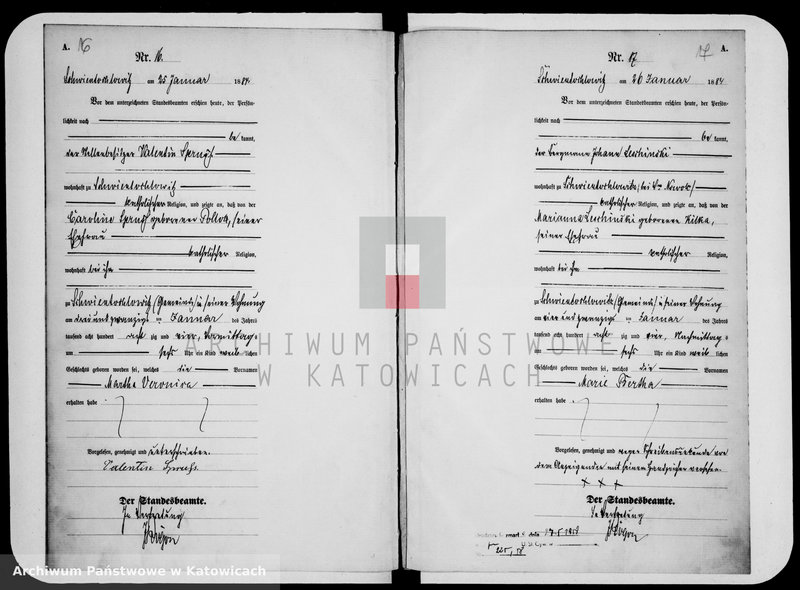 A. 16
Nr. 16.
Schwientochlowitz am 25 Januar 1884.
Vor dem unterzeichneten Standesbeamten erschien heute, der Persön-
lichkeit nach
be kannt,
der Stellenbesitzer Valentin
wohnhaft zu Schwientochlowitz
katholischer Religion, und zeigte an, daß von der
Caroline geborenen seiner
Ehefrau
katholischer Religion,
wohnhaft bei ihm
zu Schwientochlowitz (Gemeinde) in seiner Wohnung
am dreiundzwanzigsten Januar des Jahres
tausend acht hundert achtzig und vier, Vormittags
um sechs Uhr ein Kind weiblichen
Geschlechts geboren worden sei, welches die Vornamen
Martha Veronica
erhalten habe
Vorgelesen, genehmigt und unterschrieben.
Valentin
Der Standesbeamte.
In Vertretung
17 A.
Nr. 17
Schwientochlowitz am 26 Januar 1884
Vor dem unterzeichneten Standesbeamten erschien heute, der Persön-
lichkeit nach
be kannt,
der Bergmann Johann Luschinski
wohnhaft zu Schwientochlowitz bei Nowok
katholischer Religion, und zeigte an, daß von der
Marianna Luschinski geborenen Kilka,
seiner Ehefrau
katholischer Religion,
wohnhaft bei ihm
zu Schwientochlowitz (Gemeinde) in seiner Wohnung
am vier und zwanzigsten Januar des Jahres
tausend acht hundert achtzig und vier, Nachmittags
um sechs Uhr ein Kind weiblichen
Geschlechts geboren worden sei, welches die Vornamen
Marie Bertha
erhalten habe
Vorgelesen, genehmigt und wegen Schreibensunkunde von
dem Anzeigenden mit seinem Handzeichen versehen.
+ + +
Der Standesbeamte.
In Vertretung
ARCHIWUM PAŃSTWOWE
W KATOWICACH
Archiwum Państwowe w Katowicach